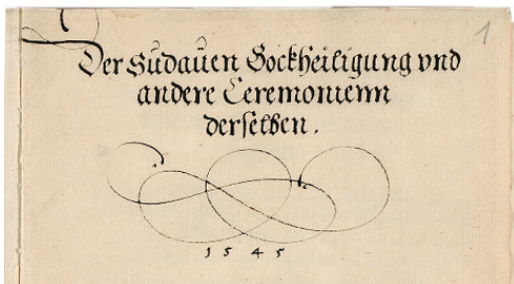 1
Der Sudauen Bockheiligung vnd
andere Ceremonienn
derselben.
1545